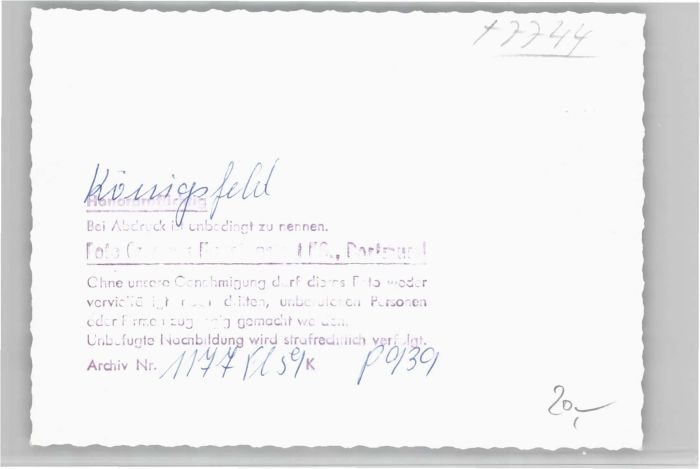 +7744
Königsfeld
Honorarpflichtig
Bei Abdruck ist unbedingt zu nennen.
Foto KG., Dortmund
Ohne unsere Genehmigung darf dieses Foto weder
vervielfältigt noch dritten, unberufenen Personen
oder Firmen zugängig gemacht werden.
Unbefugte Nachbildung wird strafrechtlich verfolgt.
Archiv Nr. 1177 59 K P 9139
20,-